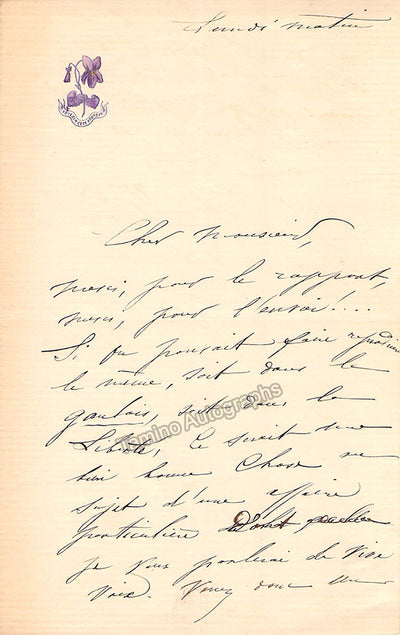 Lundi matin
Cher Monsieur,
merci, pour le rapport,
merci, pour l'envoi!...
Si on pouvait faire reproduire
le même, soit dans le
gaulois, soit dans la
Liberté, ce serait une
bien bonne chose au
sujet d'une affaire
particulière dont
je vous parlerai de vive
voix. Venez donc
Tamino Autographs